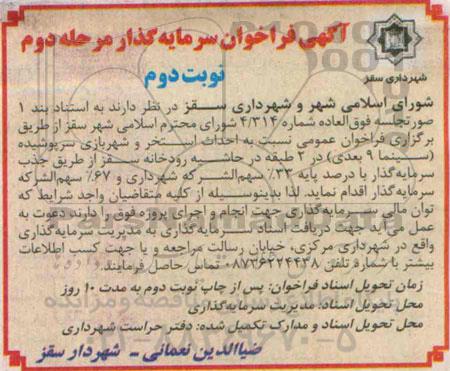 آگهی فراخوان سرمایه گذار مرحله دوم
نوبت دوم
شهرداری سقز
شورای اسلامی شهر و شهرداری سقز در نظر دارند به استناد بند ۱
صورتجلسه فوق العاده شماره ۴/۳۱۴ شورای محترم اسلامی شهر سقز از طریق
برگزاری فراخوان عمومی نسبت به احداث استخر و شهربازی سرپوشیده
(سینما ۹ بعدی) در ۲ طبقه در حاشیه رودخانه سقز از طریق جذب
سرمایه گذار با درصد پایه ۳۳٪ سهم الشرکه شهرداری و ۶۷٪ سهم الشرکه
سرمایه گذار اقدام نماید. لذا بدینوسیله از کلیه متقاضیان واجد شرایط که
توان مالی سرمایه گذاری جهت انجام و اجرای پروژه فوق را دارند دعوت به
عمل می آید جهت دریافت اسناد سرمایه گذاری به مدیریت سرمایه گذاری
واقع در شهرداری مرکزی، خیابان رسالت مراجعه و یا جهت کسب اطلاعات
بیشتر با شماره تلفن ۰۸۷۳۶۲۲۴۴۳۸ تماس حاصل فرمایند.
زمان تحویل اسناد فراخوان: پس از چاپ نوبت دوم به مدت ۱۰ روز
محل تحویل اسناد: مدیریت سرمایه گذاری
محل تحویل اسناد و مدارک تکمیل شده: دفتر حراست شهرداری
ضیاالدین نعمانی - شهردار سقز